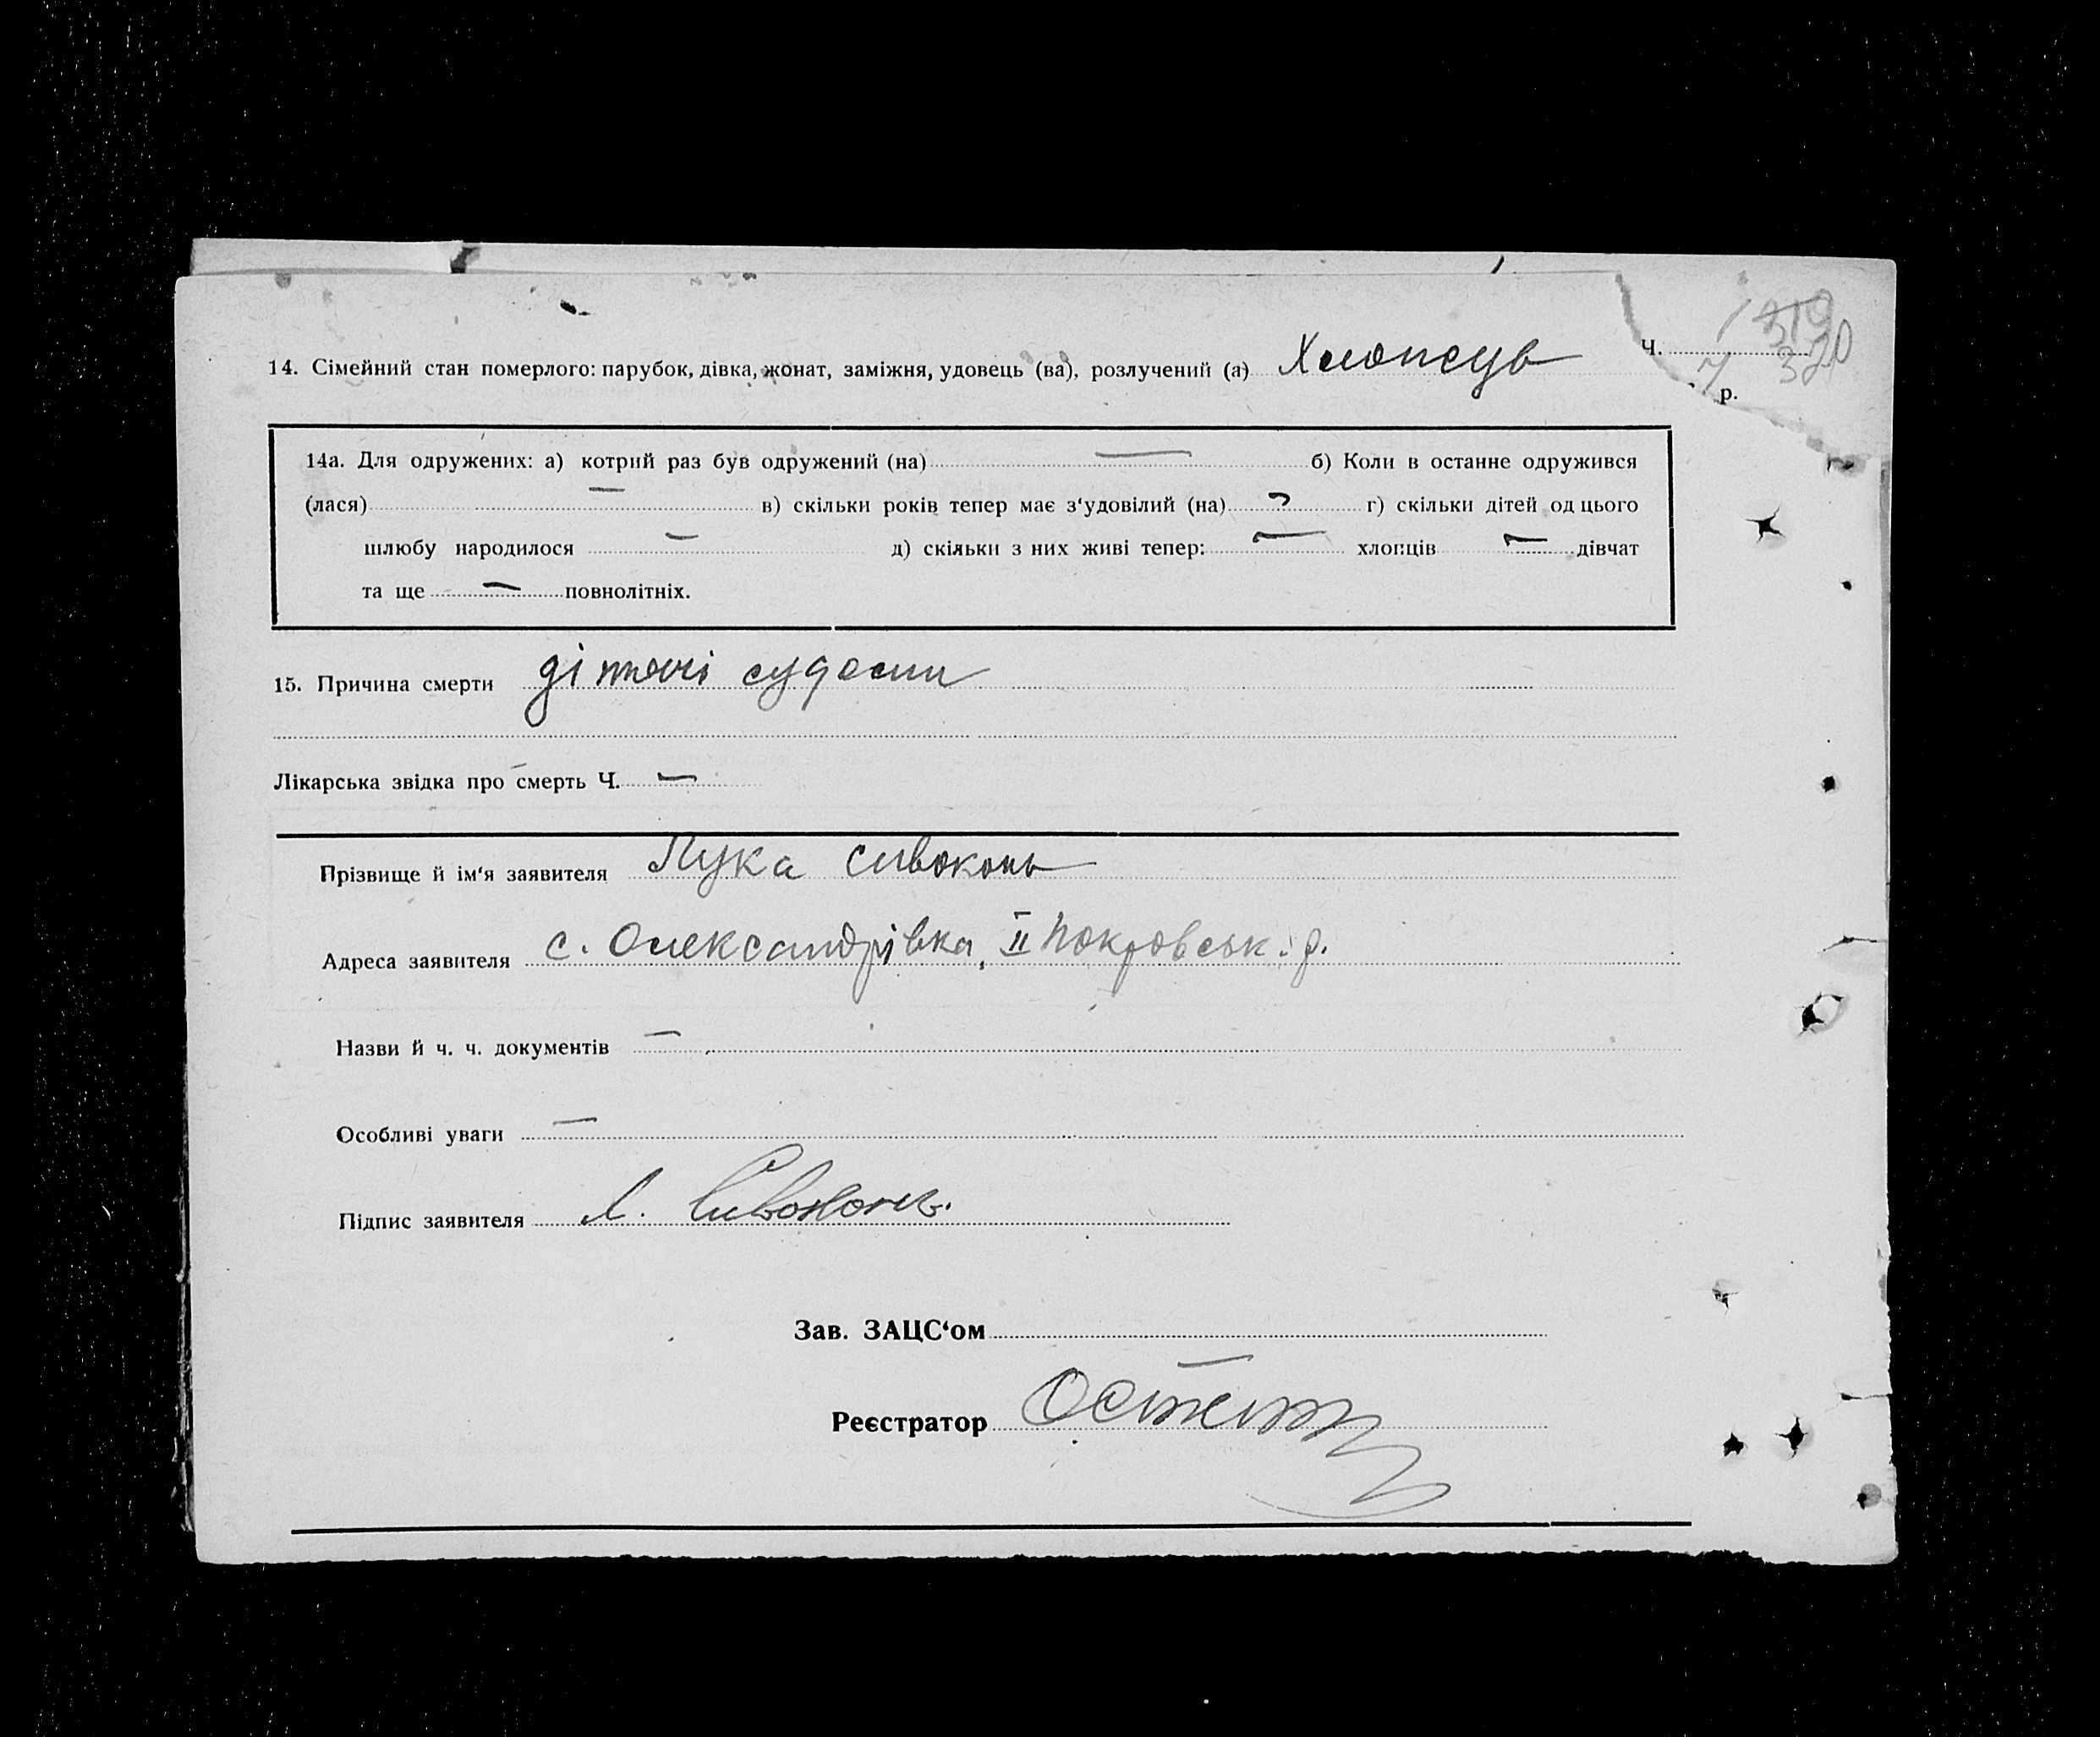 14. Сімейний стан померлого: парубок, дівка, жонат, заміжня, удовець (ва), розлучений (а) Хлопець
Ч. 320
р.
14а. Для одружених: а) котрий раз був одружений (на) — б) Коли в останне одружився
(лася) — в) скільки років тепер має з‘удовілий (на) г) скільки дітей од цього
шлюбу народилося — д) скільки з них живі тепер: — хлопців — дівчат
та ще — повнолітніх.
15. Причина смерти дітячі судоми
Лікарська звідка про смерть Ч. —
Прізвище й ім‘я заявителя Лука Сивоконь
Адреса заявителя с. Олександрівка, II Покровськ. р.
Назви й ч. ч. документів —
Особливі уваги —
Підпис заявителя Л. Сивоконь.
Зав. ЗАЦС‘ом
Реєстратор